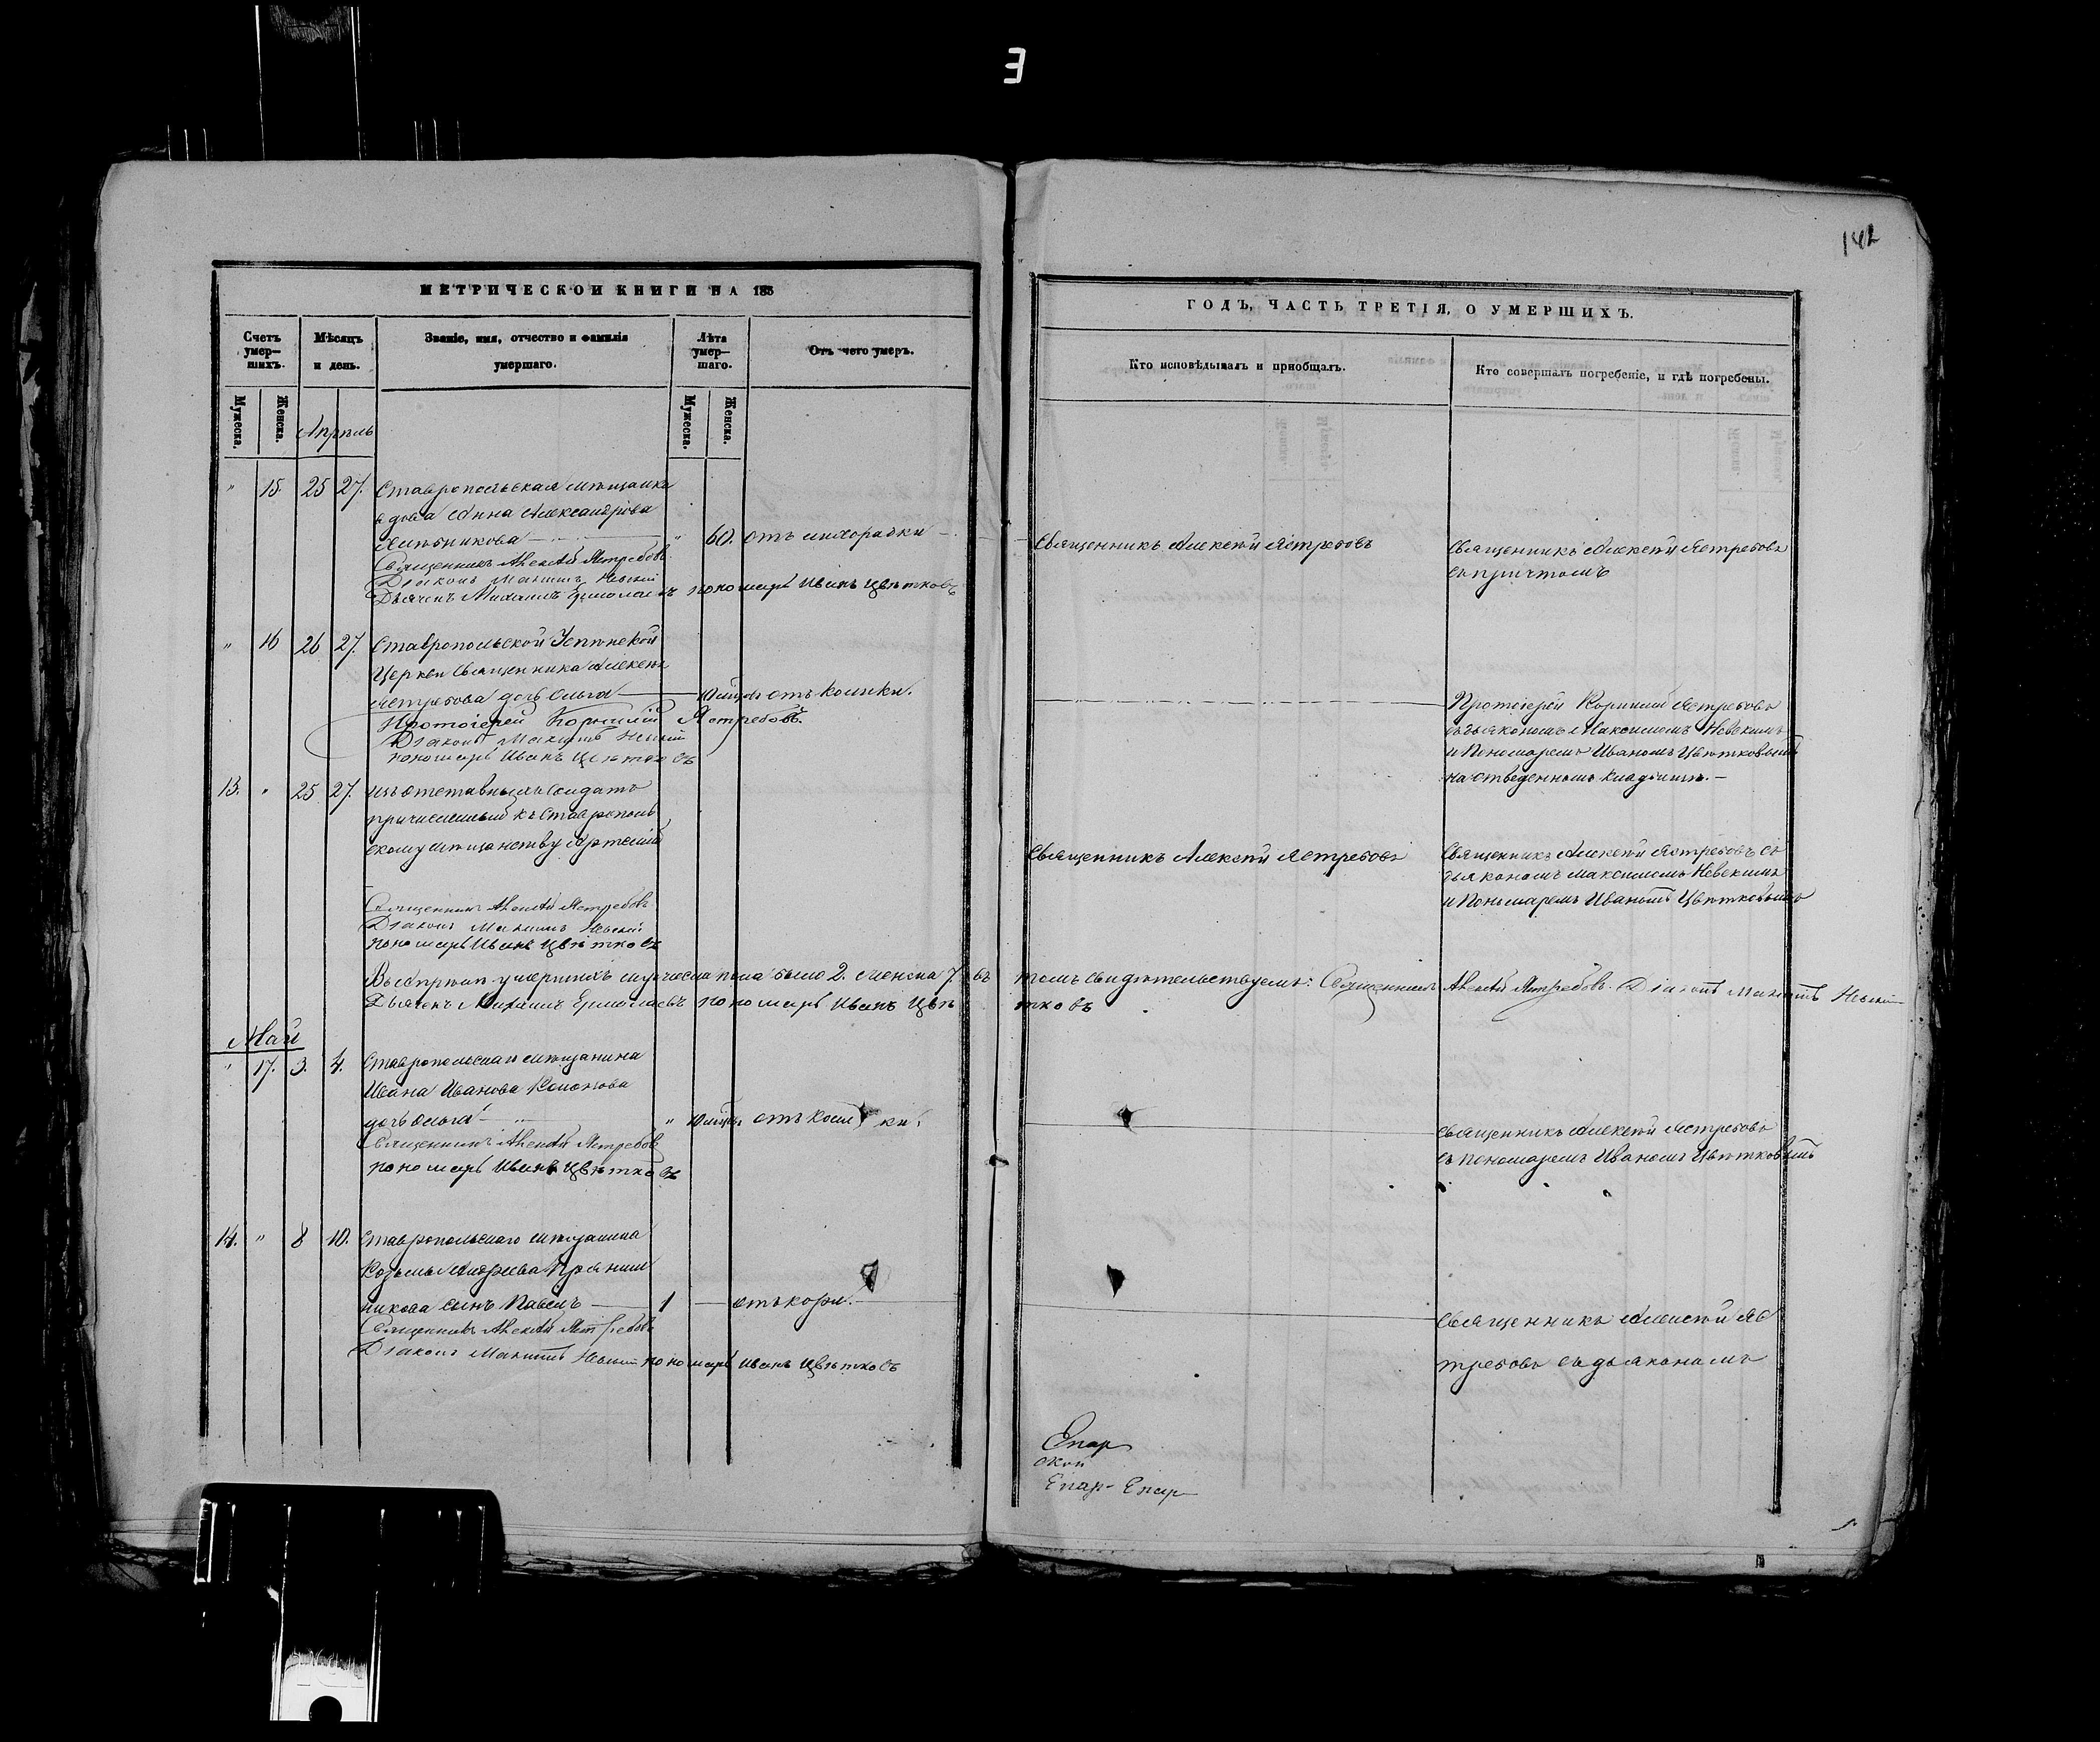 МЕТРИЧЕСКОЙ КНИГИ НА 185
Счетъ умер-шихъ.
Мѣсяцъ и день.
Званіе, имя, отчество и фамилія умершаго.
Лѣта умер-шаго.
Отъ чего умеръ.
Мужеска. Женска. Апрѣль Мужеска. Женска.
" 15. 25 27. Ставропольская мѣщанка
вдова Анна Александрова
" 60. отъ лихорадки
Священникъ Алексѣй Ястребовъ
Діаконъ Максимъ Невскій
Дьячекъ Михаилъ Ермолаевъ пономарь Иванъ Цвѣтковъ
" 16 26 27. Ставропольской Успѣнской
Церкви Священника Алексѣя
Ястребова дочь Ольга отъ колики.
Протоіерей Корнилій Ястребовъ.
Діаконъ Максимъ Невскій
пономарь Иванъ Цвѣтковъ
13. " 25 27. изъ отставныхъ Солдатъ
причисленный къ Ставрополь
скому мѣщанству
Священникъ Алексѣй Ястребовъ
Діаконъ Максимъ Невскій
пономарь Иванъ Цвѣтковъ
умершихъ мужеска пола было 2. женска 7. въ
Дьячекъ Михаилъ Ермолаевъ пономарь Иванъ Цвѣ
Май
" 17. 3. 4. Ставропольскаго мѣщанина
Ивана Иванова
дочь Ольга " отъ колики.
Священникъ Алексѣй Ястребовъ
пономарь Иванъ Цвѣтковъ
14. " 8 10. Ставропольскаго мѣщанина
Козьмы Андреева Прянич
никова сынъ Павелъ 1 отъ кори.
Священникъ Алексѣй Ястребовъ
Діаконъ Максимъ Невскій пономарь Иванъ Цвѣтковъ
142
ГОДЪ, ЧАСТЬ ТРЕТІЯ, О УМЕРШИХЪ.
Кто исповѣдывалъ и пріобщалъ.
Кто совершалъ погребеніе, и гдѣ погребены.
Священникъ Алексѣй Ястребовъ
Священникъ Алексѣй Ястребовъ
съ причтомъ
Протоіерей Корнилій Ястребовъ
съ дьякономъ Максимомъ Невскимъ
и Пономаремъ Иваномъ Цвѣтковымъ
на отведенномъ кладбищѣ.
Священникъ Алексѣй Ястребовъ
Священникъ Алексѣй Ястребовъ съ
дьякономъ Максимомъ Невскимъ
и Пономаремъ Иваномъ Цвѣтковымъ
томъ свидѣтельствуемъ: Священникъ Алексѣй Ястребовъ. Діаконъ Максимъ Невскій
тковъ
Священникъ Алексѣй Ястребовъ
съ пономаремъ Иваномъ Цвѣтковымъ
Священникъ Алексѣй Яс
требовъ съ дьякономъ
Епар
ской
Епар- Епар